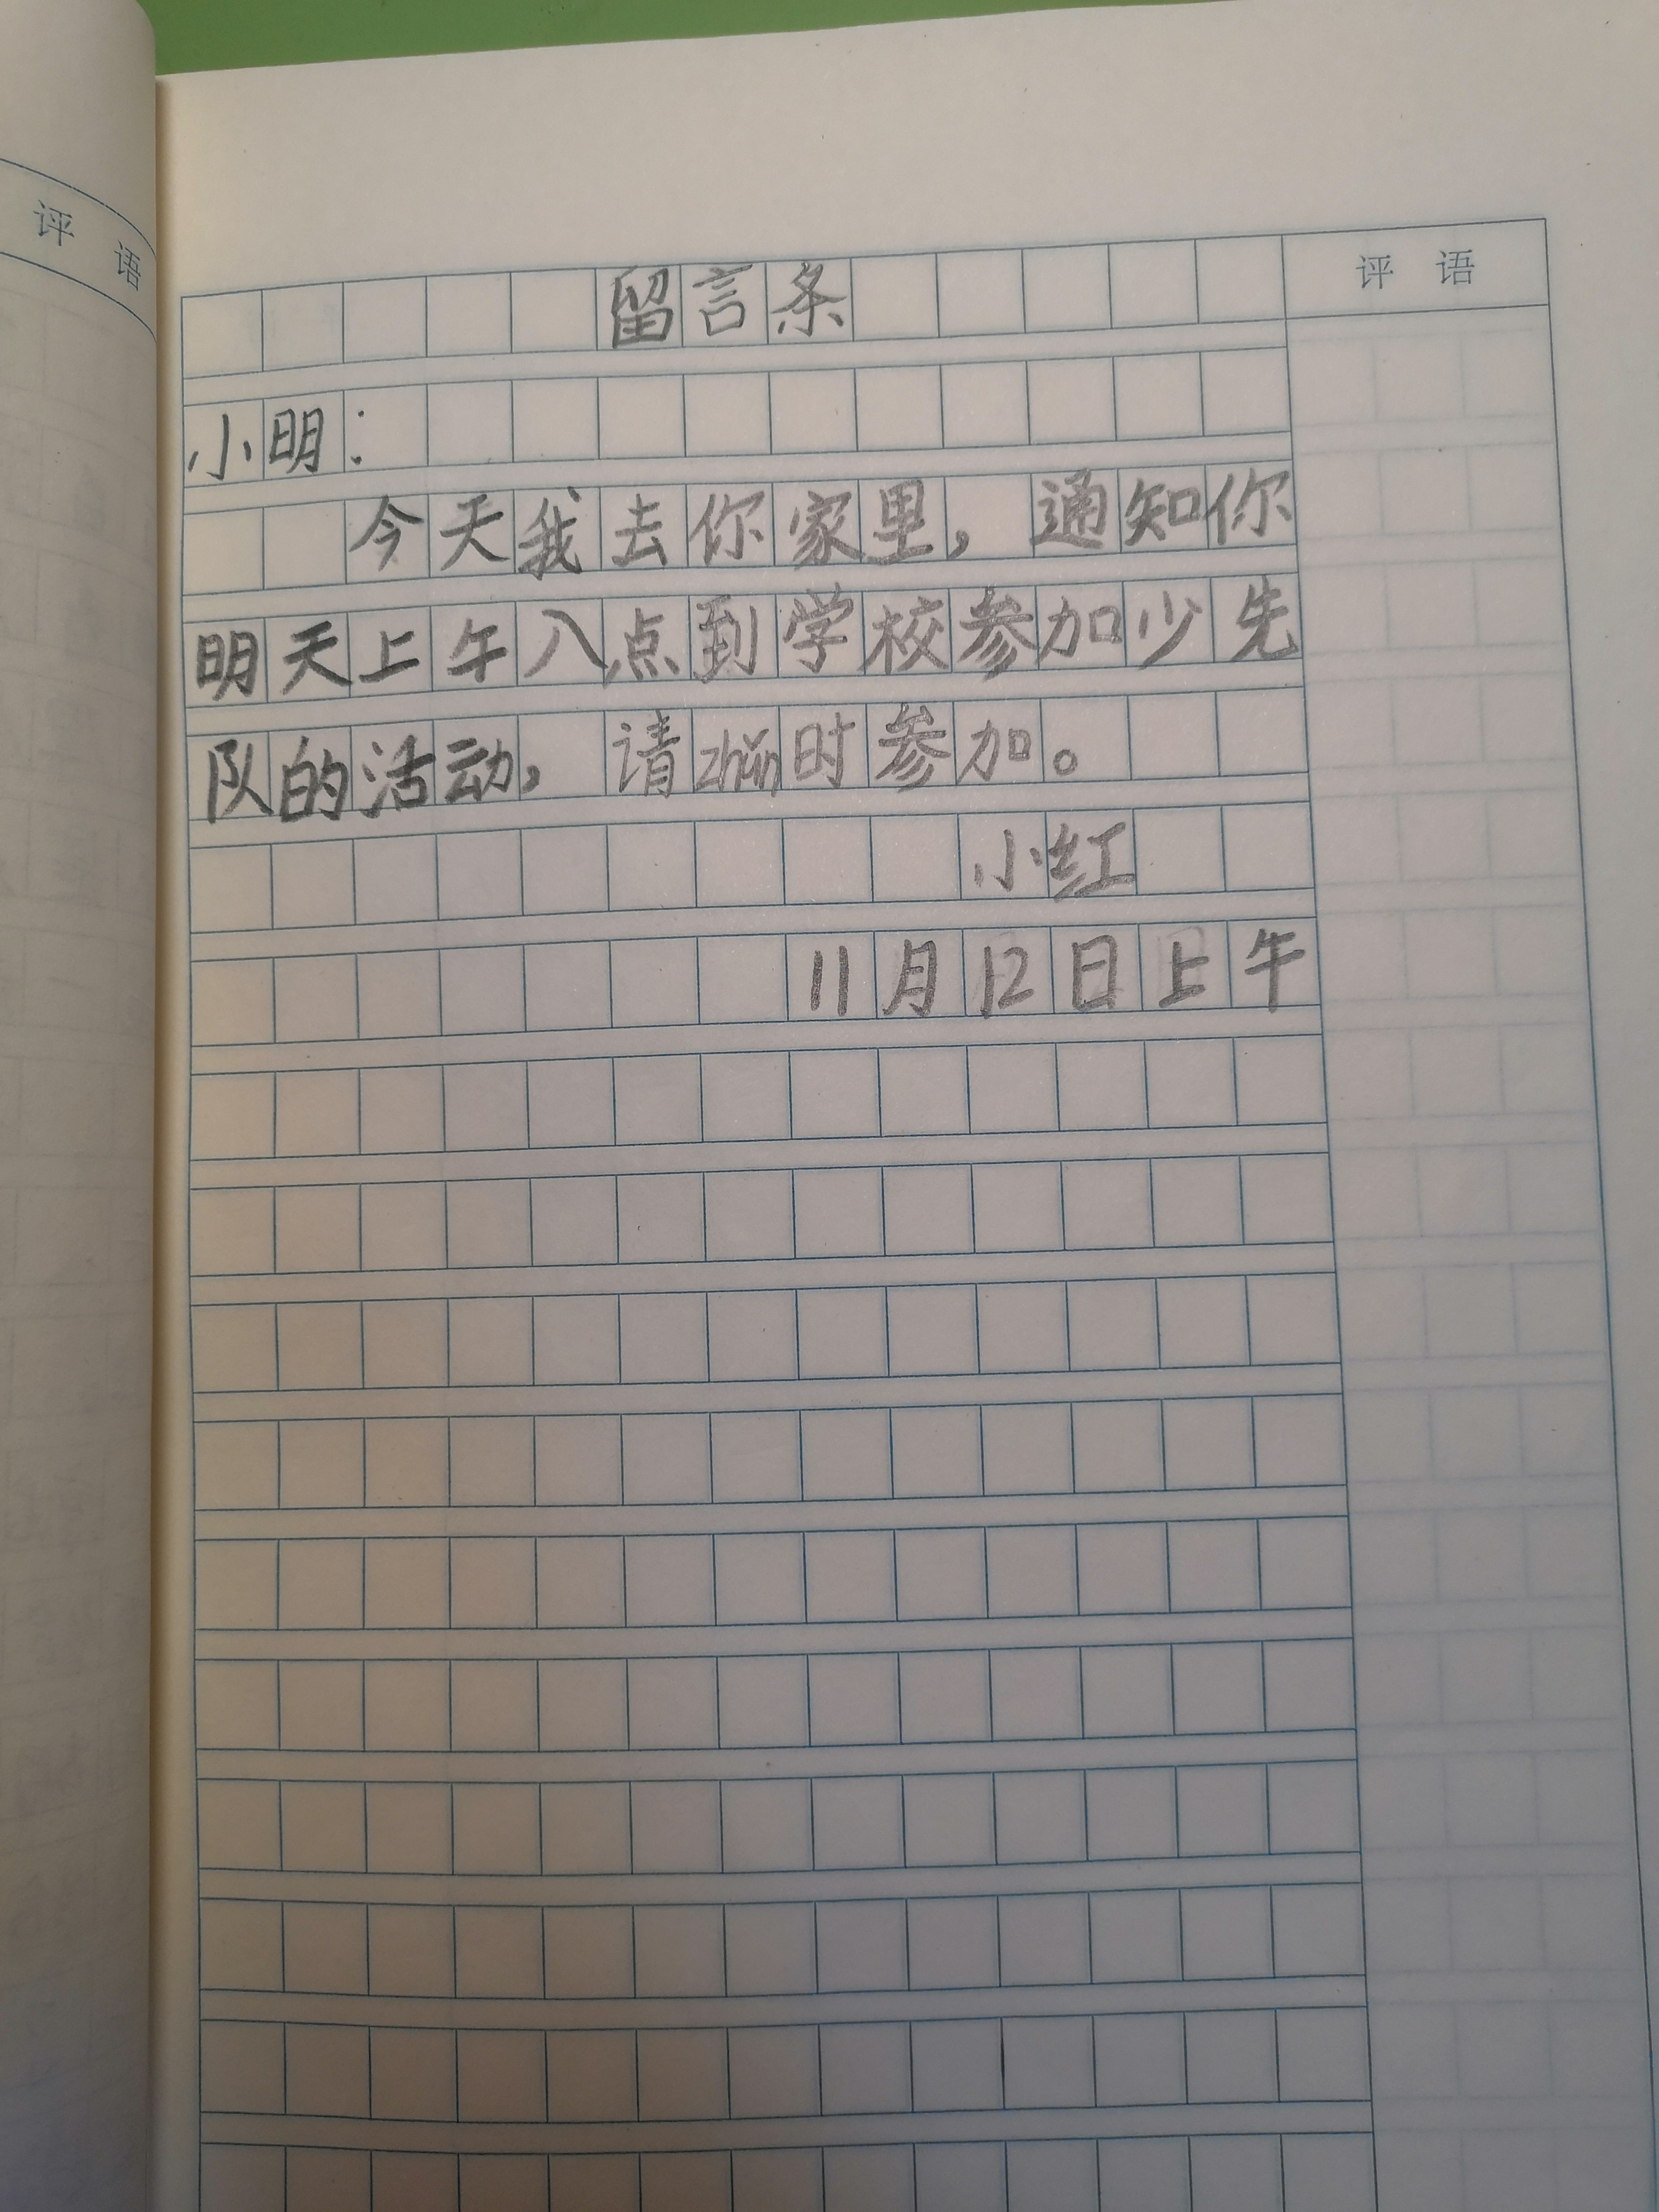 评语
留言条
评语
小明：
今天我去你家里，通知你
明天上午八点到学校参加少先
队的活动，请zhǔn时参加。
小红
11月12日上午